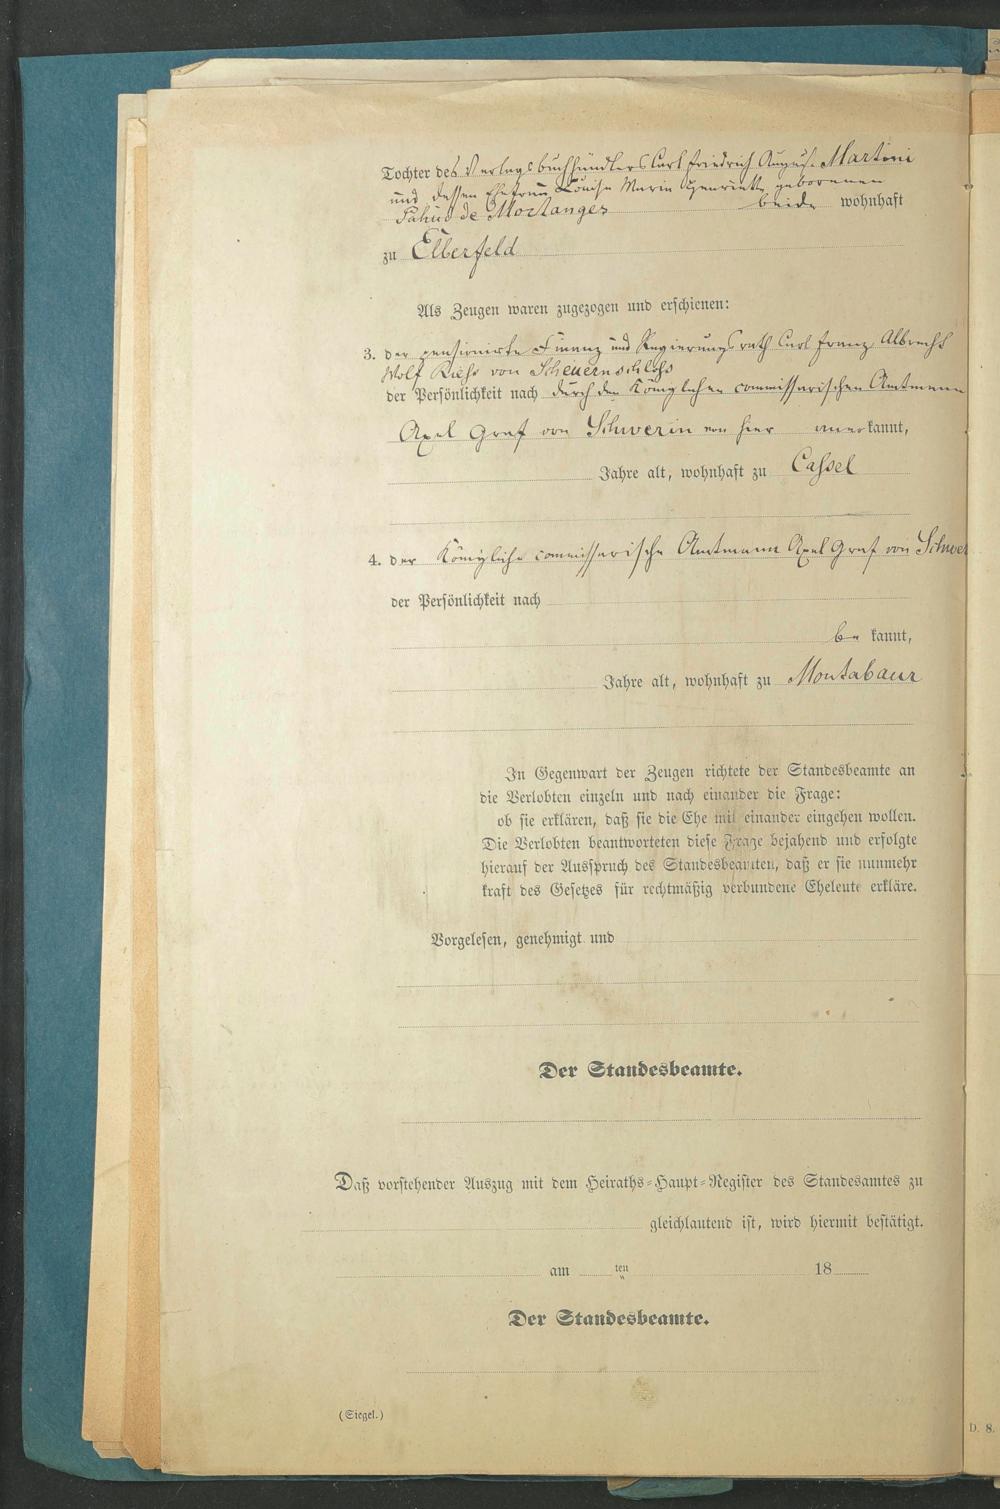 Tochter des Verlagsbuchhändlers Carl Friedrich August Martini
und dessen Ehefrau Louise Marie Henriette geborenen
Pahud de Mortanges beide wohnhaft
zu Elberfeld
Als Zeugen waren zugezogen und erschienen:
3. der pensionirte Finanz und Regierungsrath Carl Franz Albrecht
Wolf Riehs von Scheuernschloss
der Persönlichkeit nach durch den Königlichen commissarischen Amtmann
Axel Graf von Schwerin von hier anerkannt,
Jahre alt, wohnhaft zu Cassel
4. der Königliche commissarische Amtmann Axel Graf von Schwer
der Persönlichkeit nach
be kannt,
Jahre alt, wohnhaft zu Montabaur
In Gegenwart der Zeugen richtete der Standesbeamte an
die Verlobten einzeln und nach einander die Frage:
ob sie erklären, daß sie die Ehe mit einander eingehen wollen.
Die Verlobten beantworteten diese Frage bejahend und erfolgte
hierauf der Ausspruch des Standesbeamten, daß er sie nunmehr
kraft des Gesetzes für rechtmäßig verbundene Eheleute erkläre.
Vorgelesen, genehmigt und
Der Standesbeamte.
Daß vorstehender Auszug mit dem Heiraths-Haupt-Register des Standesamtes zu
gleichlautend ist, wird hiermit bestätigt.
am ten 18
Der Standesbeamte.
(Siegel.)
D. 8.